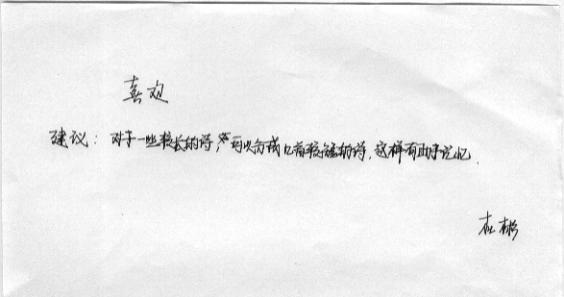 喜迎
建议：对于一些较长的诗，可以分成几首较短的诗，这样有助于记忆．
杜彬